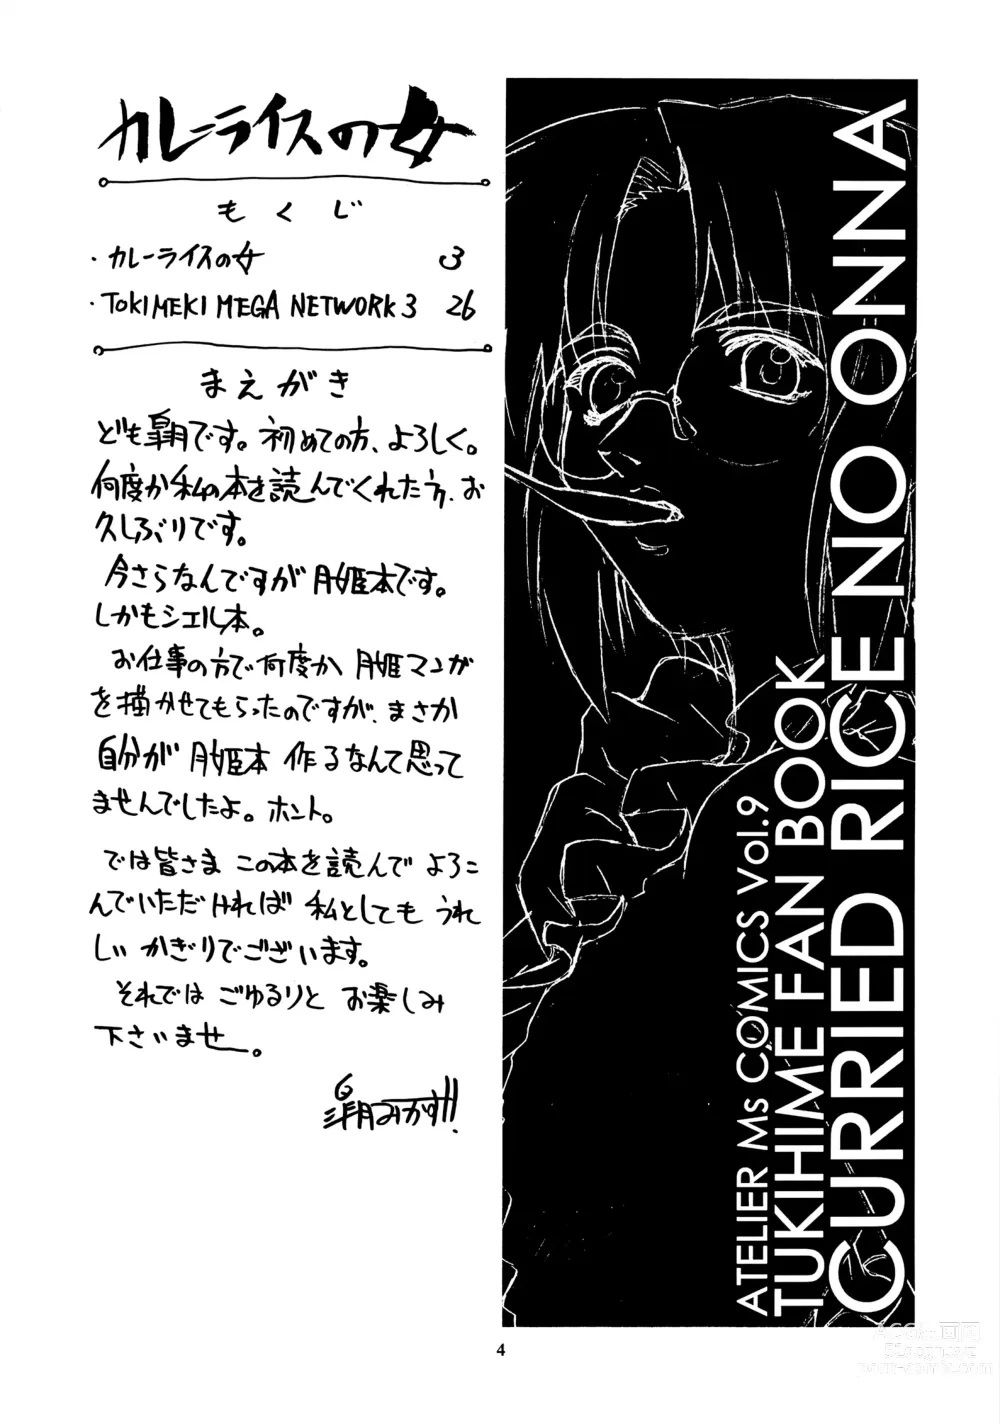 カレーライスの女
もくじ
・カレーライスの女 3
・TOKIMEKI MEGA NETWORK 3 26
まえがき
ども皐月です。初めての方、よろしく。
何度か私の本を読んでくれた方、お
久しぶりです。
今さらなんですが月姫本です。
しかもシエル本。
お仕事の方で何度か月姫マンガ
を描かせてもらったのですが、まさか
自分が月姫本作るなんて思って
ませんでしたよ。ホント。
では皆さまこの本を読んでよろこ
んでいただければ私としてもうれ
しいかぎりでございます。
それではごゆるりとお楽しみ
下さいませ。
皐月みかず!!
ATELIER Ms COMICS Vol.9
TUKIHIME FAN BOOK
CURRIED RICE NO ONNA
4
ACG漫画网